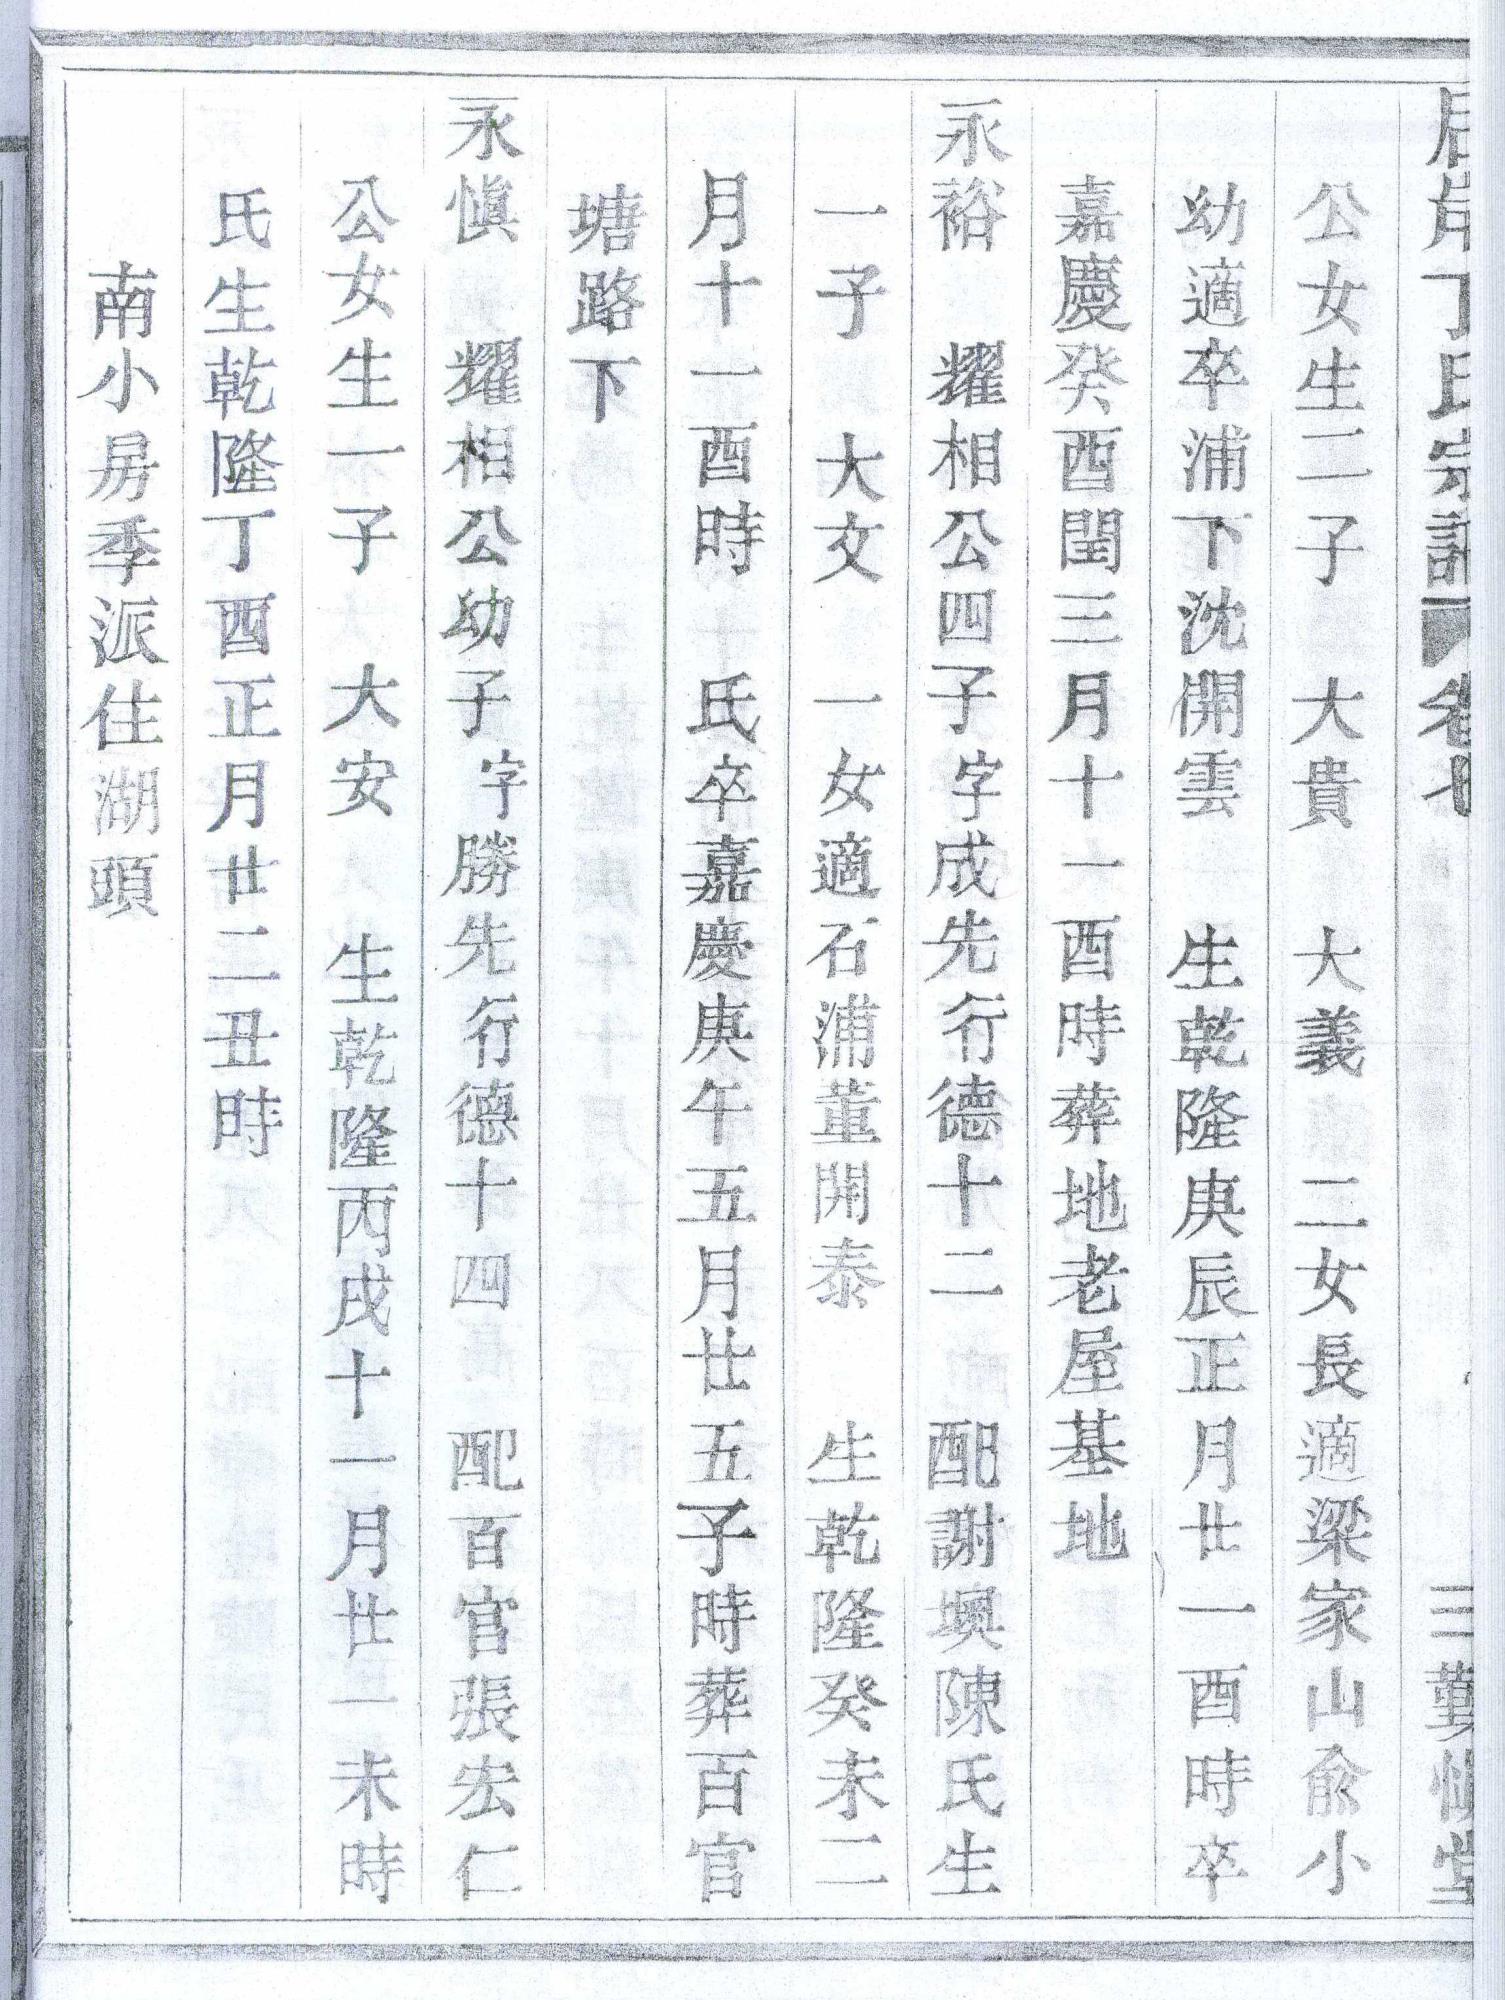 丁氏宗譜 卷七 三 勤慎堂
公女生二子 大貴 大義 二女長適梁家山俞小
幼適卒浦下沈開雲 生乾隆庚辰正月廿一酉時卒
嘉慶癸酉閏三月十一酉時葬地老屋基地
永裕 耀相公四子字成先行德十二 配謝墺陳氏生
一子 大文 一女適石浦董開泰 生乾隆癸未二
月十一酉時 氏卒嘉慶庚午五月廿五子時葬百官
塘路下
永愼 耀相公幼子字勝先行德十四 配百官張宏仁
公女生一子 大安 生乾隆丙戌十一月廿一未時
氏生乾隆丁酉正月廿二丑時
南小房季派住湖頭